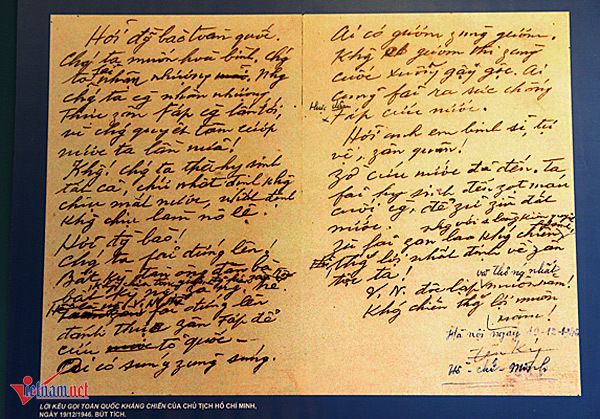 Hỡi đồng bào toàn quốc.
Chúng ta muốn hoà bình. Chúng
ta fải nhân nhượng. Nhưng
chúng ta càng nhân nhượng
thực zân Fáp càng lấn tới,
vì chúng quyết tâm cướp
nước ta lần nữa!
Không! chúng ta thà hy sinh
tất cả, chứ nhất định không
chịu mất nước, nhất định
không chịu làm nô lệ!
Hỡi đồng bào!
Chúng ta fải đứng lên!
Bất kỳ đàn ông đàn bà
fải đứng lên
đánh thực zân Fáp để
cứu tổ quốc
Ai có súng zùng súng.
Ai có gươm zùng gươm.
Không có gươm thì zùng
cuốc xuổng gậy gộc. Ai
cũng fải ra sức chống
Fáp cứu nước.
Hỡi anh em binh sĩ, tự
vệ, zân quân!
Zờ cứu nước đã đến. Ta
fải hy sinh đến zọt máu
cuối cùng, để zữ zìn đất
nước.
Zù fải zan lao kháng chiến,
thắng lợi nhất định về zân
tộc ta!
V. N. độc lập và thống nhất muôn năm!
Kháng chiến thắng lợi muôn
năm!
Hà nội ngày 19-12-1946
Hồ-chí-Minh
Vietnam.net
LỜI KÊU GỌI TOÀN QUỐC KHÁNG CHIẾN CỦA CHỦ TỊCH HỒ CHÍ MINH,
NGÀY 19/12/1946. BÚT TÍCH.